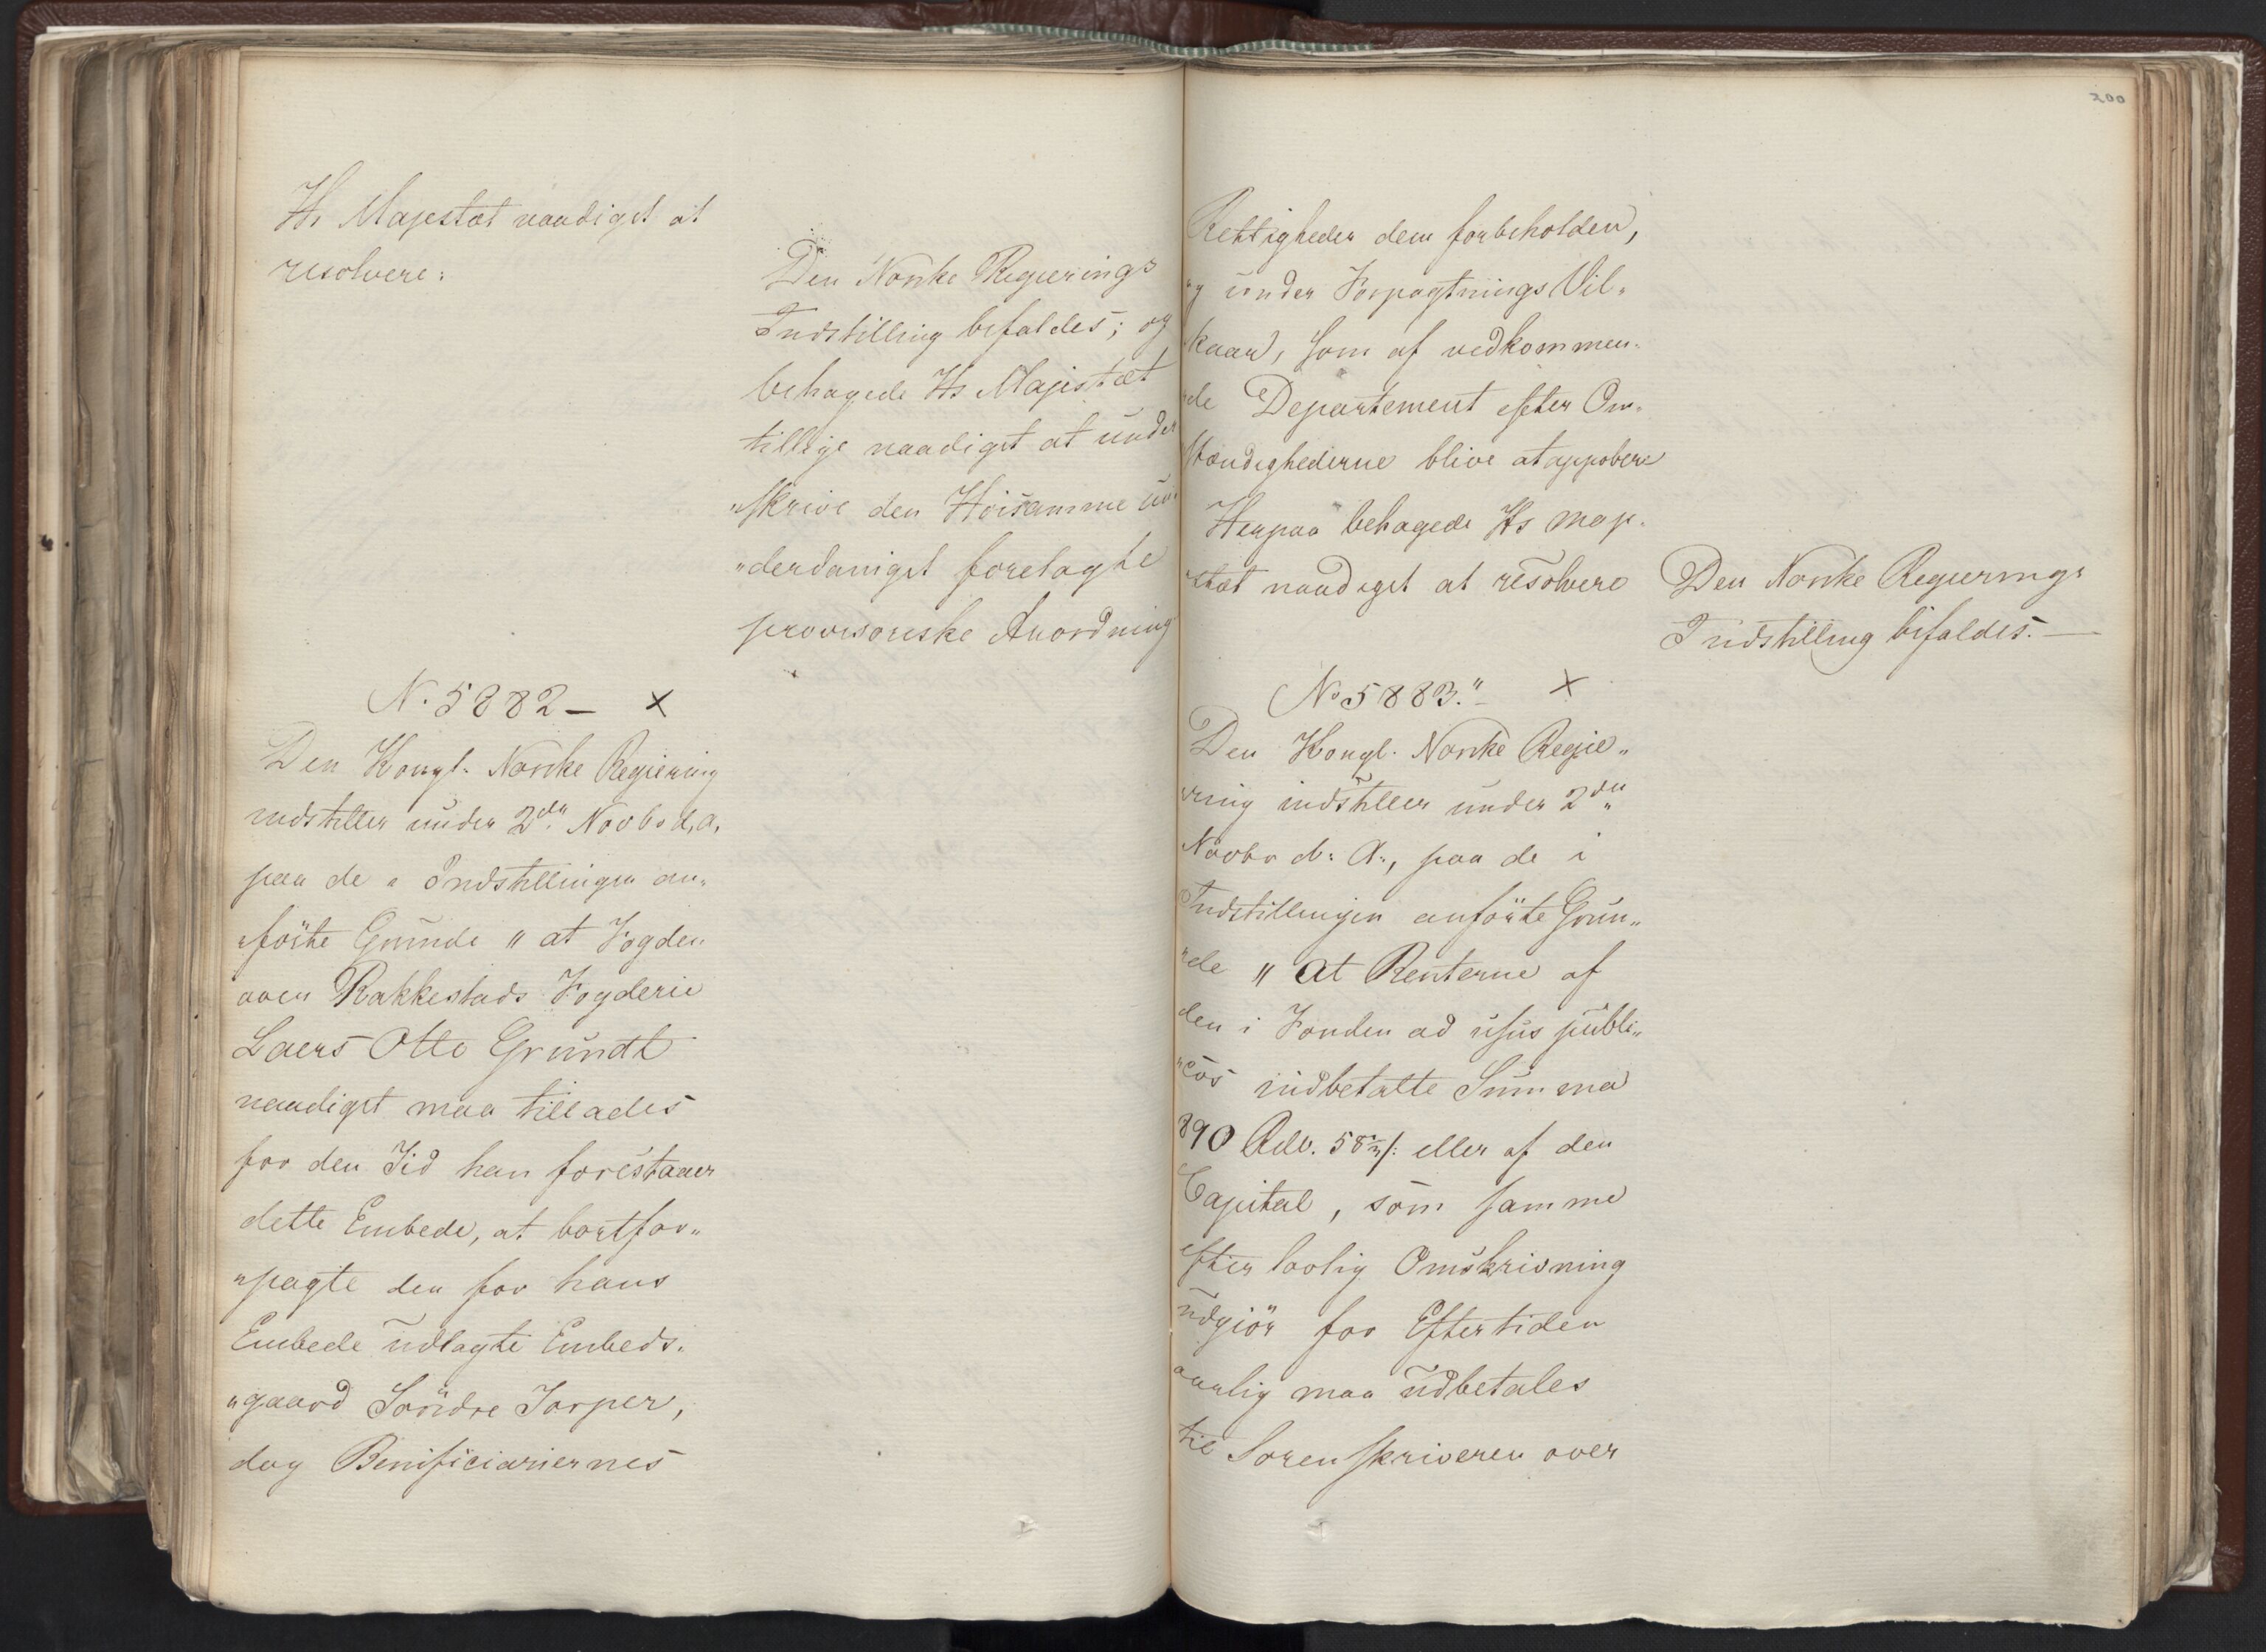 Hs Majestæt naadigst at
resolvere:
Den Norske Regjerings
Indstilling bifaldes; og
behagede Hs Majestæt
tillige naadigst at under
„skrive den Høisamme un
„derdanigst forelagte
provisoriske Anordning
N. 5882 — x
Den Kongl. Norske Regjering
indstiller under 2den Novbr d. a.
paa de i Indstillingen an„
„førte Grunde „ at Fogden
over Rakkestads Fogderie
Laers Otto Grundt
naadigst maa tillades
for den Tid han forestaaer
dette Embede, at bortfor„
„pagte den for hans
Embede udlagte Embeds„
„gaard Søndre Torper,
dog Benificiariernes
200
Rettigheder dem forbeholden,
og under Forpagtnings Vil„
kaar, som af vedkommen„
„de Departement efter Om„
stændighederne blive at appobere
Herpaa behagede Hs Maje„
stæt naadigst at resolvere
Den Norske Regjerings
Indstilling bifaldes. —
No 5883." x
Den Kongl. Norske Regie„
„ring indstiller under 2den
Novbr d: A:, paa de i
Indstillingen anførte Grun„
„de „ at Renterne af
den i Fonden ad usus publi„
„cos indbetalte Summa
890 Rdlr. 58 /: eller af den
Capital, som samme
efter lovlig Omskrivning
udgiør for Eftertiden
aarlig maa udbetales
til Sorenskriveren over